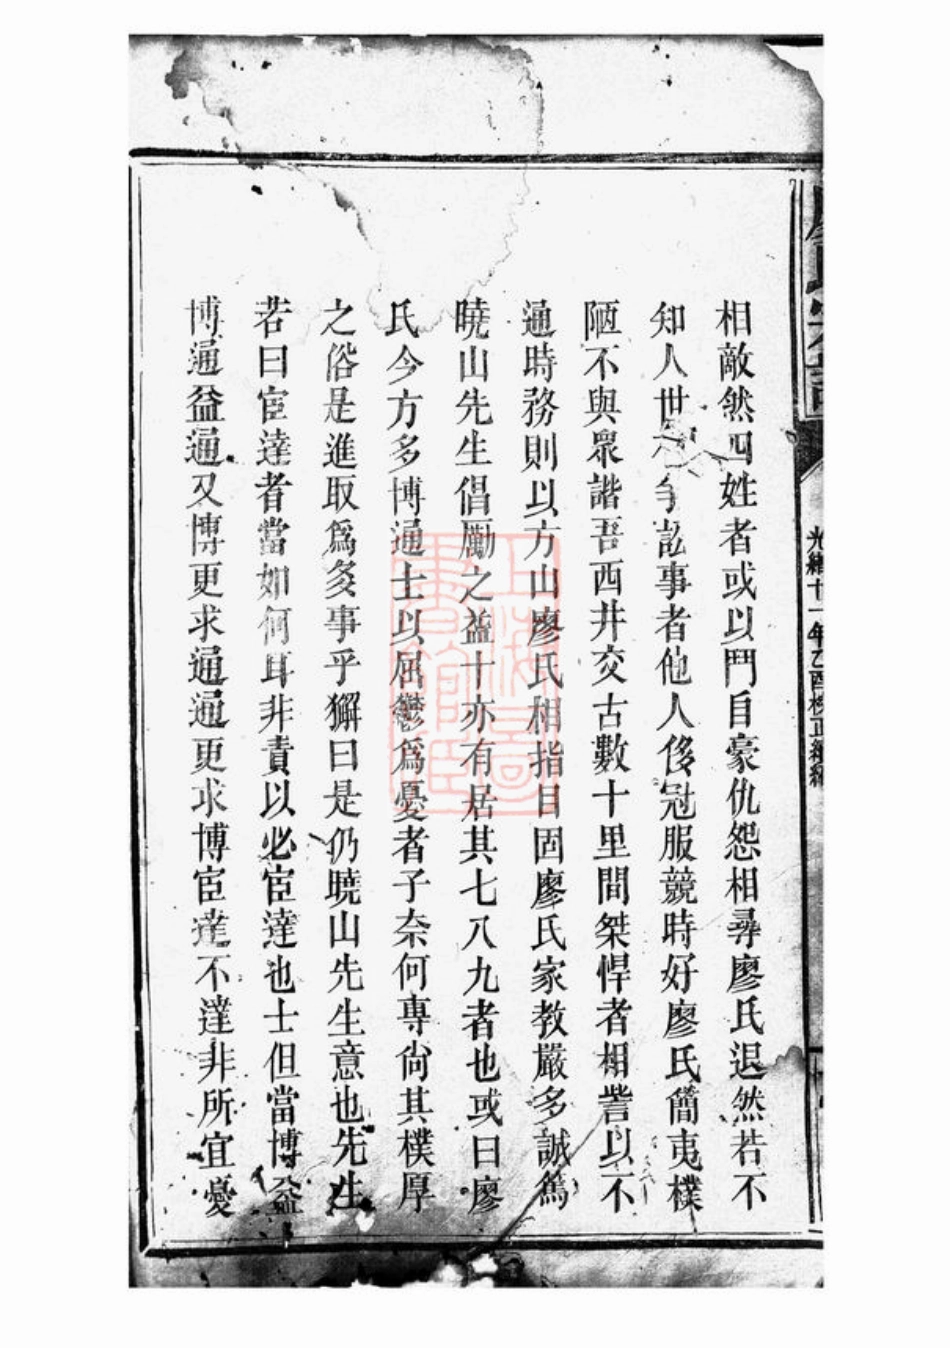 相敵然四姓者或以鬥自豪仇怨相尋廖氏退然若不
知人世爭訟事者他人侈冠服競時好廖氏簡夷樸
陋不與衆諧吾西井交古數十里間桀悍者相訾以不
通時務則以方山廖氏相指目固廖氏家教嚴多誠篤
曉山先生倡勵之益十亦有居其七八九者也或曰廖
氏今方多博通士以屈鬱爲憂者子奈何專尙其樸厚
之俗是進取爲多事乎獬曰是仍曉山先生意也先生
若曰宦達者當如何耳非責以必宦達也士但當博益
博通益通又博更求通通更求博宦達不達非所宜憂
光緒十一年乙酉
上海圖書館藏